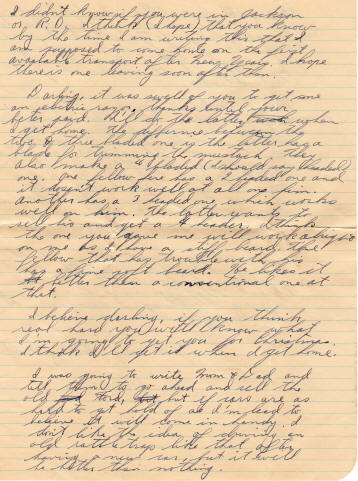 I didn't know if you were in Jackson
or R.D. I think (I hope) that you know
by the time I am writing this that I
am supposed to come home on the first
available transport after New Years. I hope
there is one leaving soon after then.
Darling it was swell of you to get me
an electric razor, thanks until your
better paid. I'll do the latter when
I get home. The difference between the
two & three bladed one is the latter has a
blade for trimming the mustach. They
also make a 4 bladed (I should say 4 headed)
one. One fellow here has a 2 headed one and
it doesn't work well at all on him.
Another has a 3 headed one which works
well on him. The latter wants to
sell his and get a 4 header. I think
the one you gave me will work alright
on me as I have a stiff beard. The
fellow that has trouble with his
has a fine soft beard. He likes it
better than a conventional one at
that.
I believe darling, if you think
real hard you will know what
I'm going to get you for Christmas.
I think I'll get it when I get home.
I was going to write Mom & Dad and
tell them to go ahead and sell the
old Ford, but if cars are as
hard to get hold of as I'm lead to
believe it will come in handy. I
don't like the idea of driving an
old rattletrap like that after
having a new car, but it will
be better than nothing.